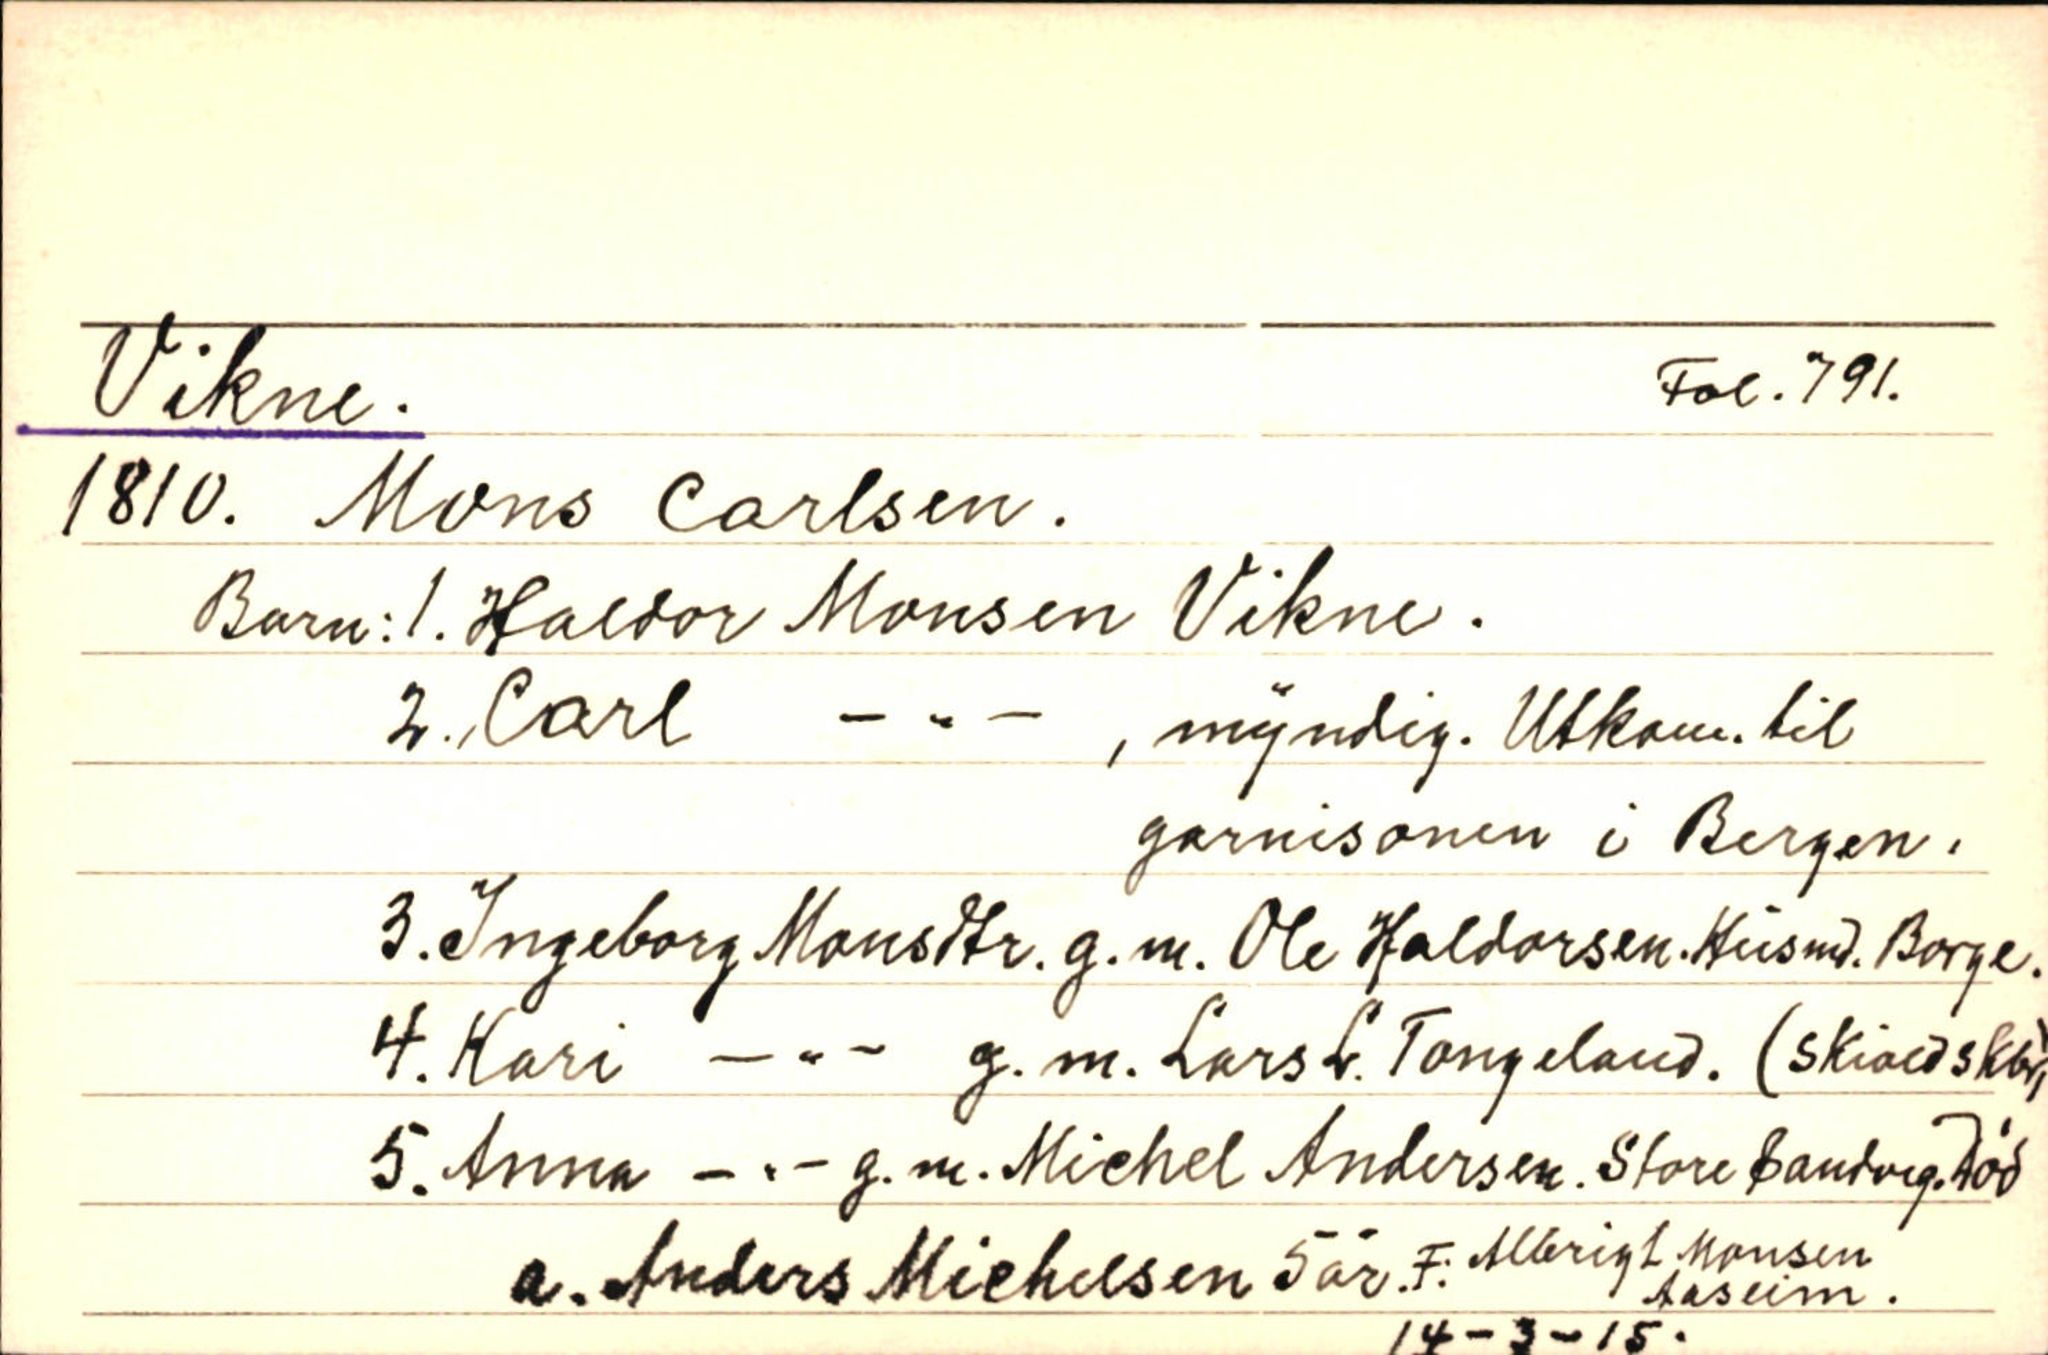 Vikne. Fol. 791.
1810. Mons Carlsen.
Barn: 1. Haldor Monsen Vikne.
2. Carl —"— , mÿndig. Utkom. til
garnisonen i Bergen.
3. Ingeborg Monsdtr. g.m. Ole Haldorsen. Husmd. Borge.
4. Kari —"— g.m. Lars L. Tongeland. (Skioldskbr,)
5. Anna —"— g.m. Michel Andersen. Store Sandvig. Död
a. Anders Michelsen 5 år. F: Albrigt Monsen
Aaseim.
14-3-15.